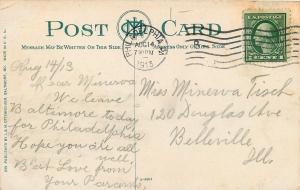 POST CARD
MESSAGE MAY BE WRITTEN ON THIS SIDE
PHILADELPHIA
AUG 14
7 PM
1913
1 CENT 1
Aug 14/13
Dear Minerva
We leave
Baltimore today
for Philadelphia
Hope you are all
well,
Best Love from
Your Parents
Miss Minerva Tisch
120 Douglas Ave
Belleville
Ill.